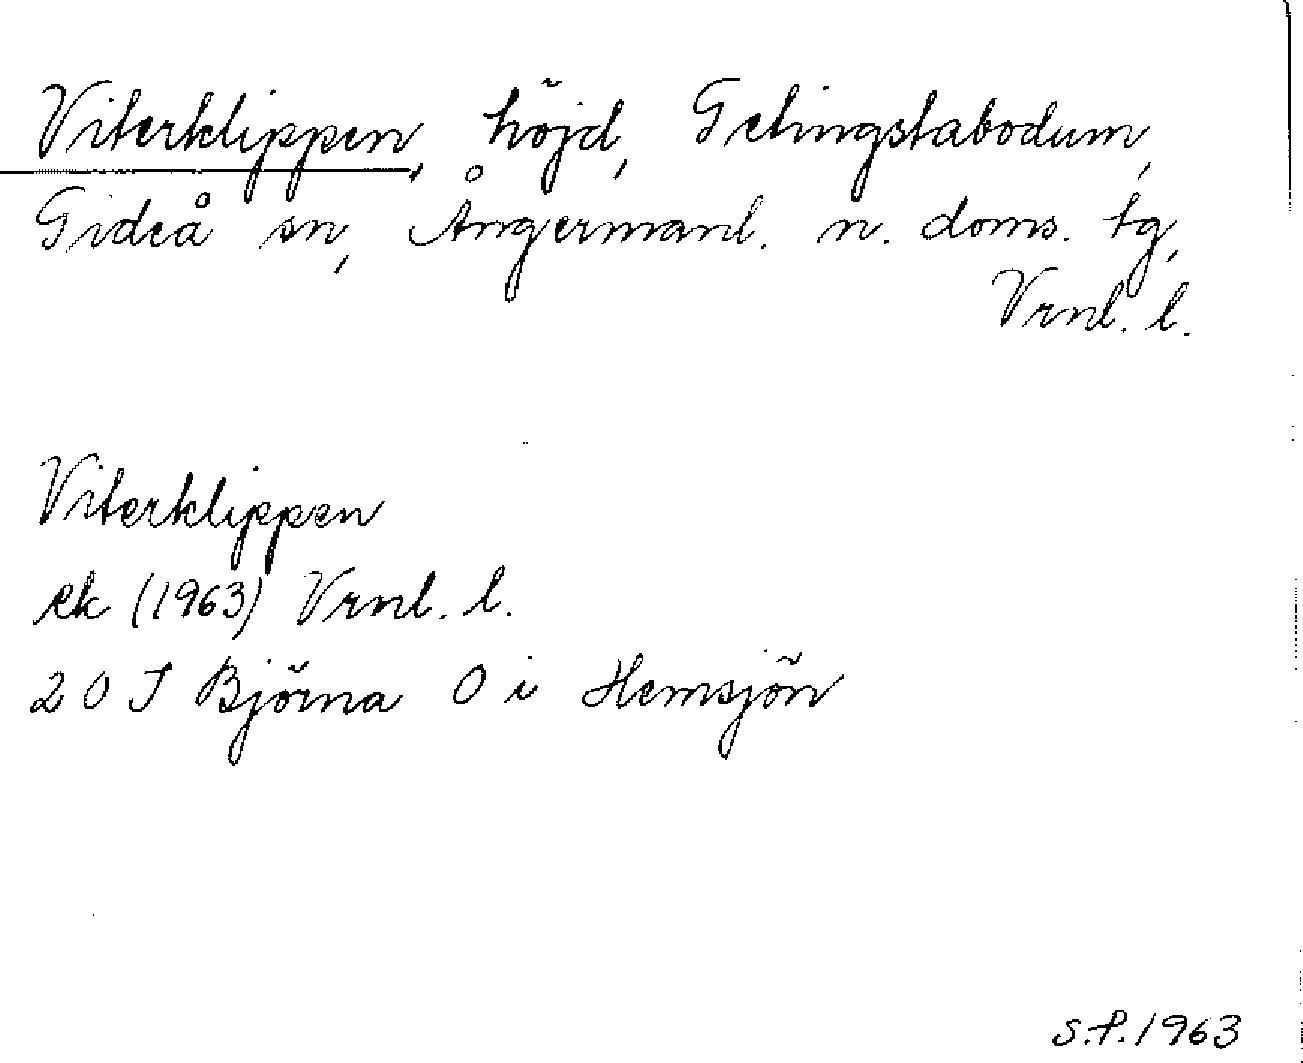 Viterklippen, höjd, Getingstabodum,
Gideå sn, Ångermanl. n. doms. tg,
Vrnl. l.
Viterklippen
ek (1963) Vrnl. l.
20 J Björna O i Hemsjön
S.P. 1963